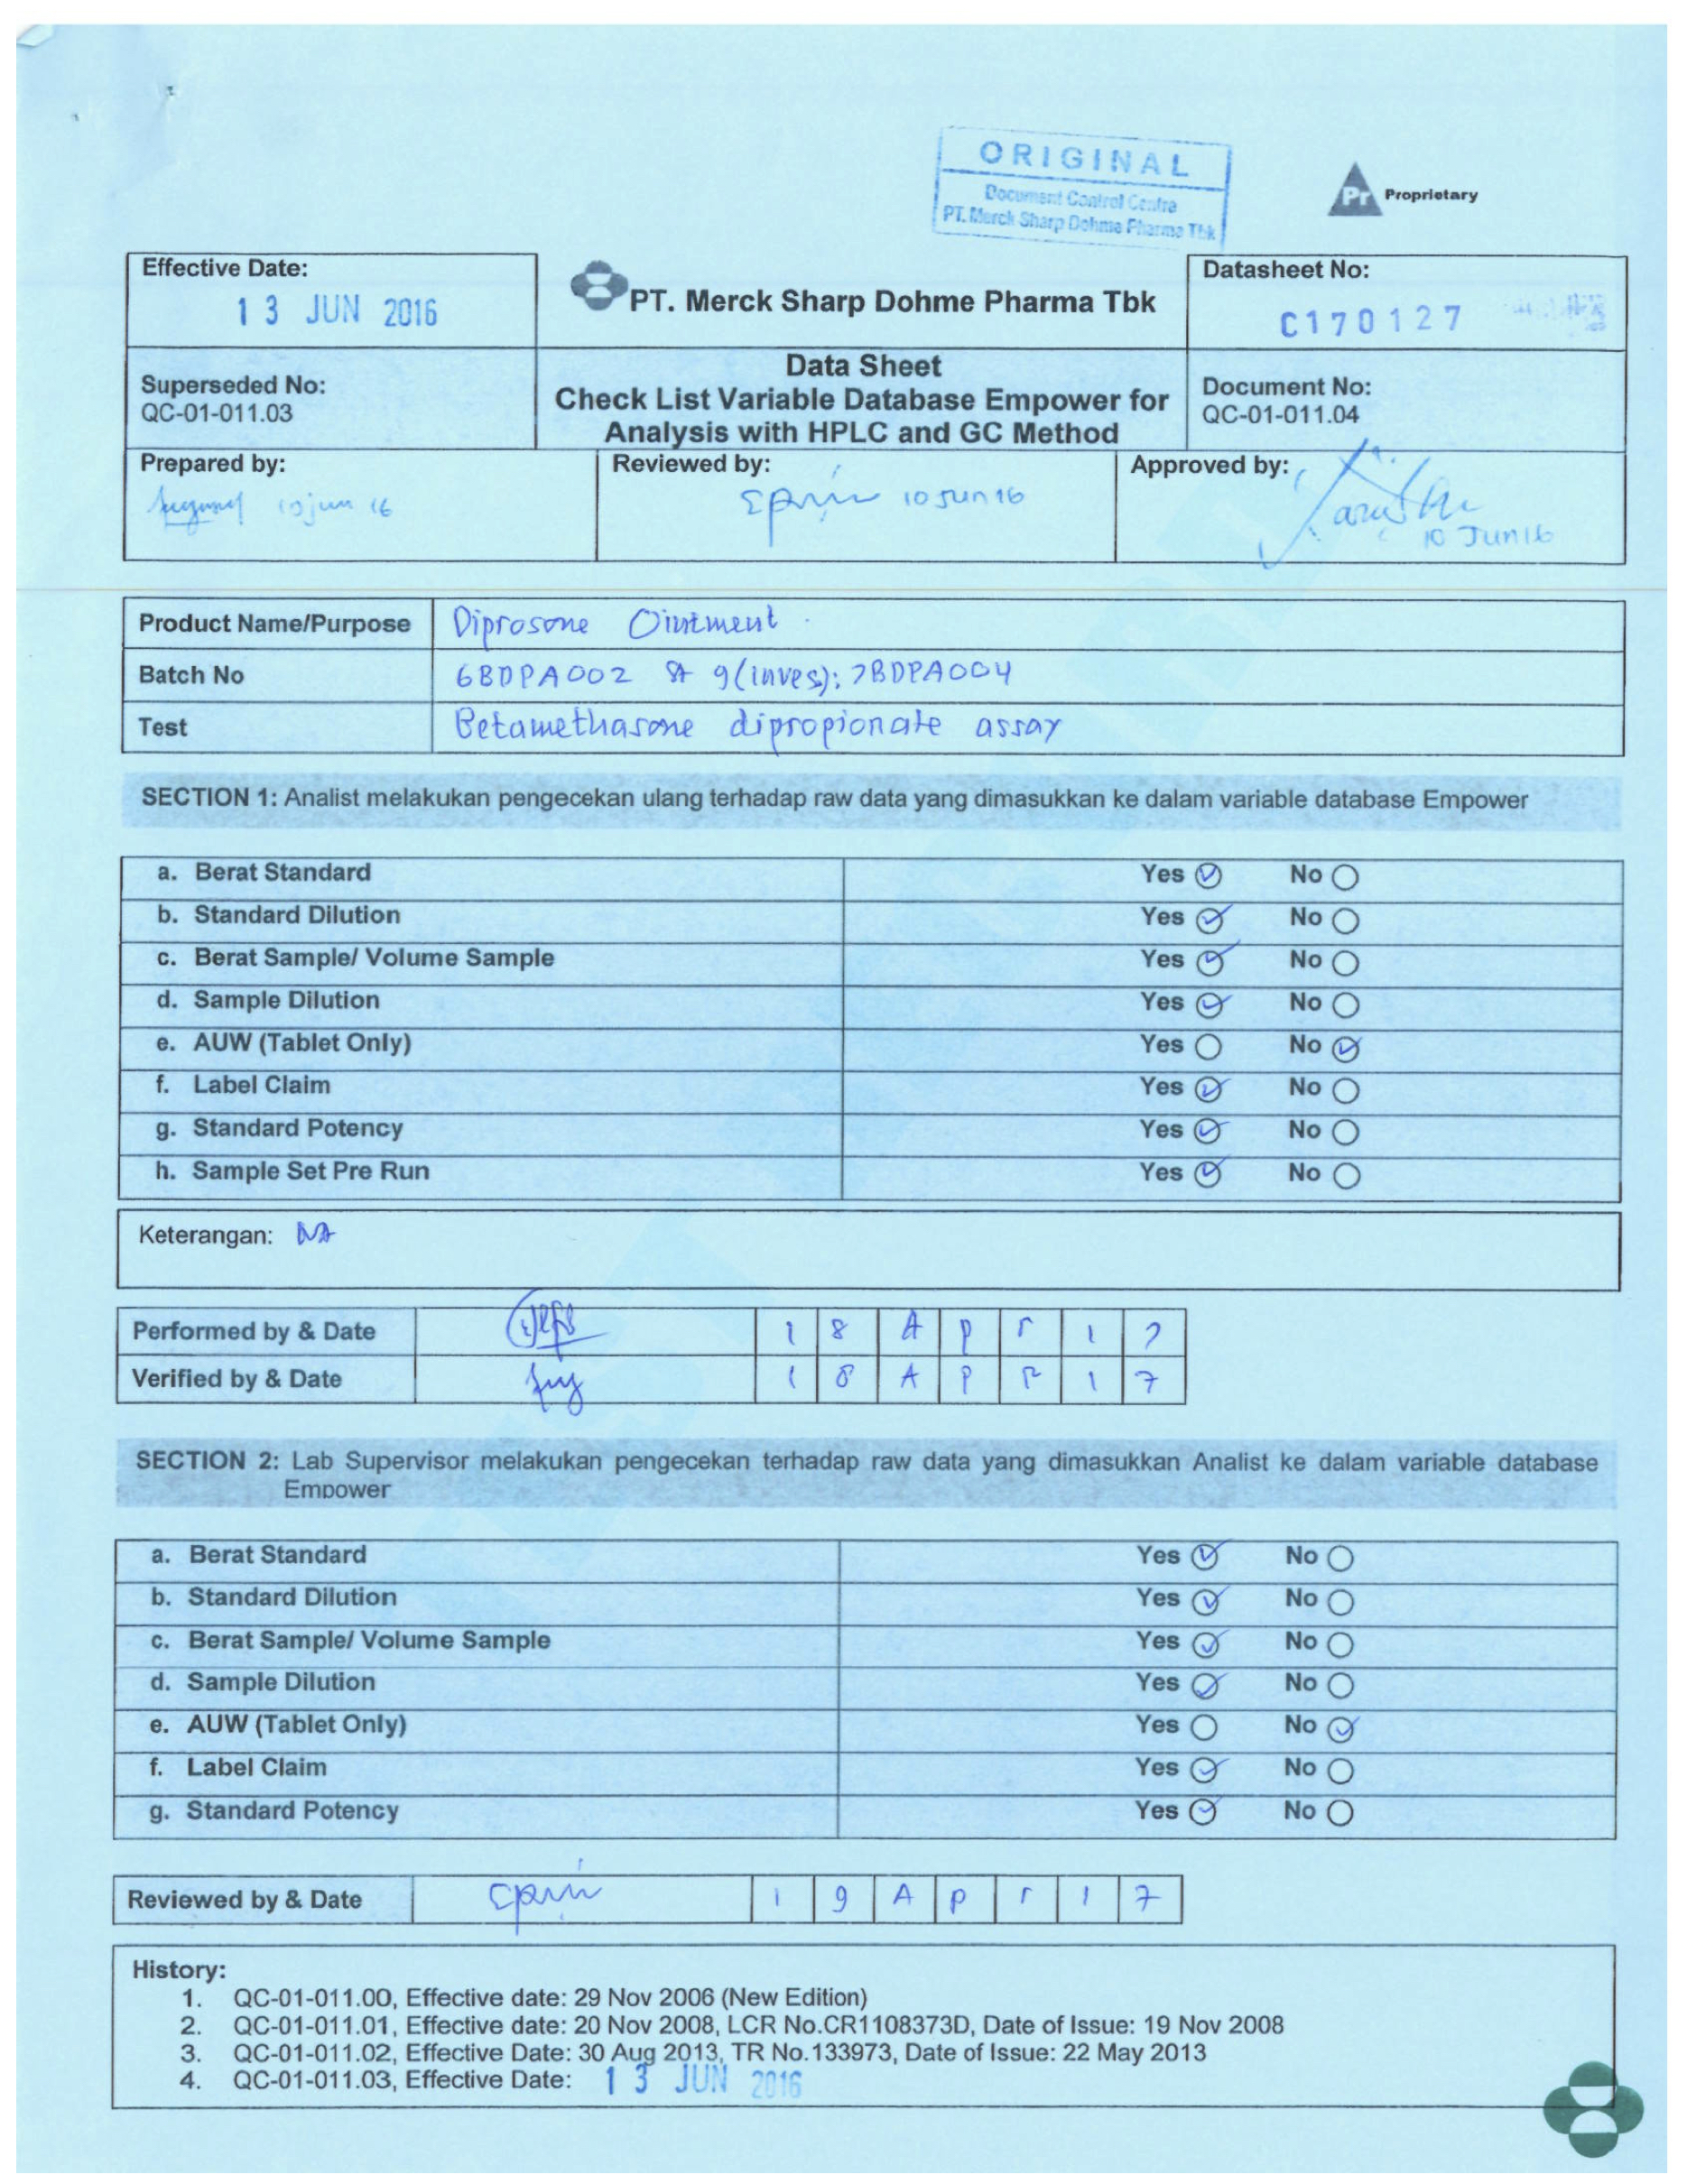 ORIGINAL
Document Control Centre
PT. Merck Sharp Dohme Pharma Tbk
Pr Proprietary
Effective Date:
13 JUN 2016
PT. Merck Sharp Dohme Pharma Tbk
Datasheet No:
C170127
Superseded No:
QC-01-011.03
Data Sheet
Check List Variable Database Empower for
Analysis with HPLC and GC Method
Document No:
QC-01-011.04
Prepared by:
10 jun 16
Reviewed by:
10 Jun 16
Approved by:
10 Jun 16
Product Name/Purpose Diprosone Ointment
Batch No 6BDPA002 St 9 (inves); 7BDPA004
Test Betamethasone dipropionate assay
SECTION 1: Analist melakukan pengecekan ulang terhadap raw data yang dimasukkan ke dalam variable database Empower
a. Berat Standard Yes No
b. Standard Dilution Yes No
c. Berat Sample/ Volume Sample Yes No
d. Sample Dilution Yes No
e. AUW (Tablet Only) Yes No
f. Label Claim Yes No
g. Standard Potency Yes No
h. Sample Set Pre Run Yes No
Keterangan: NA
Performed by & Date 18 Apr 17
Verified by & Date 18 APR 17
SECTION 2: Lab Supervisor melakukan pengecekan terhadap raw data yang dimasukkan Analist ke dalam variable database
Empower
a. Berat Standard Yes No
b. Standard Dilution Yes No
c. Berat Sample/ Volume Sample Yes No
d. Sample Dilution Yes No
e. AUW (Tablet Only) Yes No
f. Label Claim Yes No
g. Standard Potency Yes No
Reviewed by & Date 19 Apr 17
History:
1. QC-01-011.00, Effective date: 29 Nov 2006 (New Edition)
2. QC-01-011.01, Effective date: 20 Nov 2008, LCR No.CR1108373D, Date of Issue: 19 Nov 2008
3. QC-01-011.02, Effective Date: 30 Aug 2013, TR No.133973, Date of Issue: 22 May 2013
4. QC-01-011.03, Effective Date: 13 JUN 2016